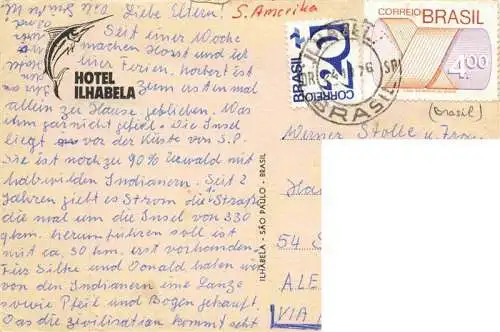 Liebe Eltern!
S. Amerika
Seit einer Woche
machen Horst und ich
hier Ferien. Norbert ist
zum ersten mal
allein zu Hause geblieben. Was
ihm garnicht gefiel. Die Insel
liegt vor der Küste von S.P.
Sie ist noch zu 90% Urwald mit
halbwilden Indianern. Seit 2
Jahren giebt es Strom die Straße
die mal um die Insel von 330
qkm. herumführen soll ist
mit ca. 50 km. erst vorhanden.
Für Silke und Donald haben wir
von den Indianern eine Lanze
sowie Pfeil und Bogen gekauft.
Das die Zivilisation kommt seht
HOTEL
ILHABELA
ILHABELA - SÃO PAULO - BRASIL
BRASIL 20
CORREIO
BRASIL
CORREIO
BRASIL
4,00
(Brasil)
Werner Stolle u. Frau
54
ALE
VIA